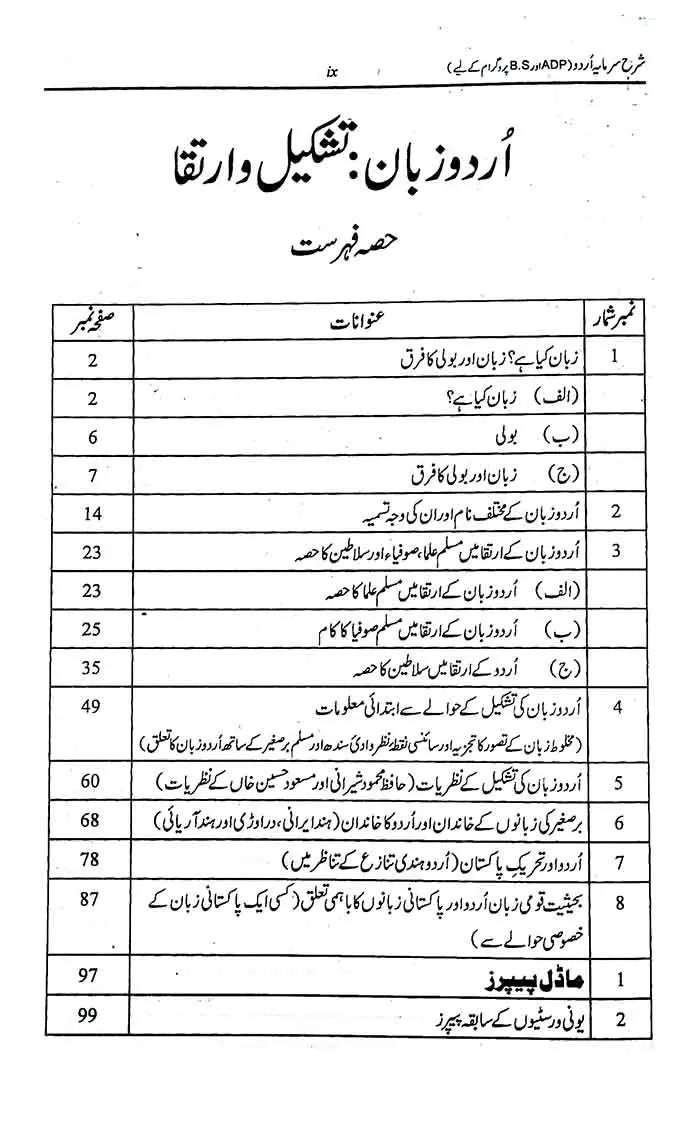 شرح سرمایۂ اُردو (ADP اور B.S پروگرام کے لیے)
ix
اُردو زبان: تشکیل و ارتقا
حصہ فہرست
نمبر شمار عنوانات صفحہ نمبر
1 زبان کیا ہے؟ زبان اور بولی کا فرق 2
(الف) زبان کیا ہے؟ 2
(ب) بولی 6
(ج) زبان اور بولی کا فرق 7
2 اُردو زبان کے مختلف نام اور ان کی وجہ تسمیہ 14
3 اُردو زبان کے ارتقا میں مسلم علما، صوفیاء اور سلاطین کا حصہ 23
(الف) اُردو زبان کے ارتقا میں مسلم علما کا حصہ 23
(ب) اُردو زبان کے ارتقا میں مسلم صوفیا کا کام 25
(ج) اُردو کے ارتقا میں سلاطین کا حصہ 35
4 اُردو زبان کی تشکیل کے حوالے سے ابتدائی معلومات 49
(مخلوط زبان کے تصور کا تجزیہ اور سائنسی نقطۂ نظر وادیٔ سندھ اور مسلم برصغیر کے ساتھ اُردو زبان کا تعلق)
5 اُردو زبان کی تشکیل کے نظریات (حافظ محمود شیرانی اور مسعود حسین خاں کے نظریات) 60
6 برصغیر کی زبانوں کے خاندان اور اُردو کا خاندان (ہند ایرانی، دراوڑی اور ہند آریائی) 68
7 اُردو اور تحریکِ پاکستان (اُردو ہندی تنازع کے تناظر میں) 78
8 بحیثیت قومی زبان اُردو اور پاکستانی زبانوں کا باہمی تعلق (کسی ایک پاکستانی زبان کے 87
خصوصی حوالے سے)
1 ماڈل پیپرز 97
2 یونی ورسٹیوں کے سابقہ پیپرز 99